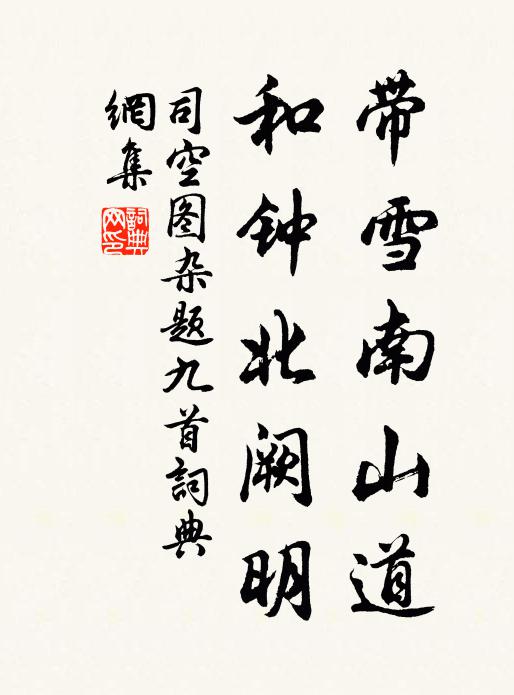 带雪南山道
和钟北阙明
司空图杂题九首詞典
網集
詞典網印